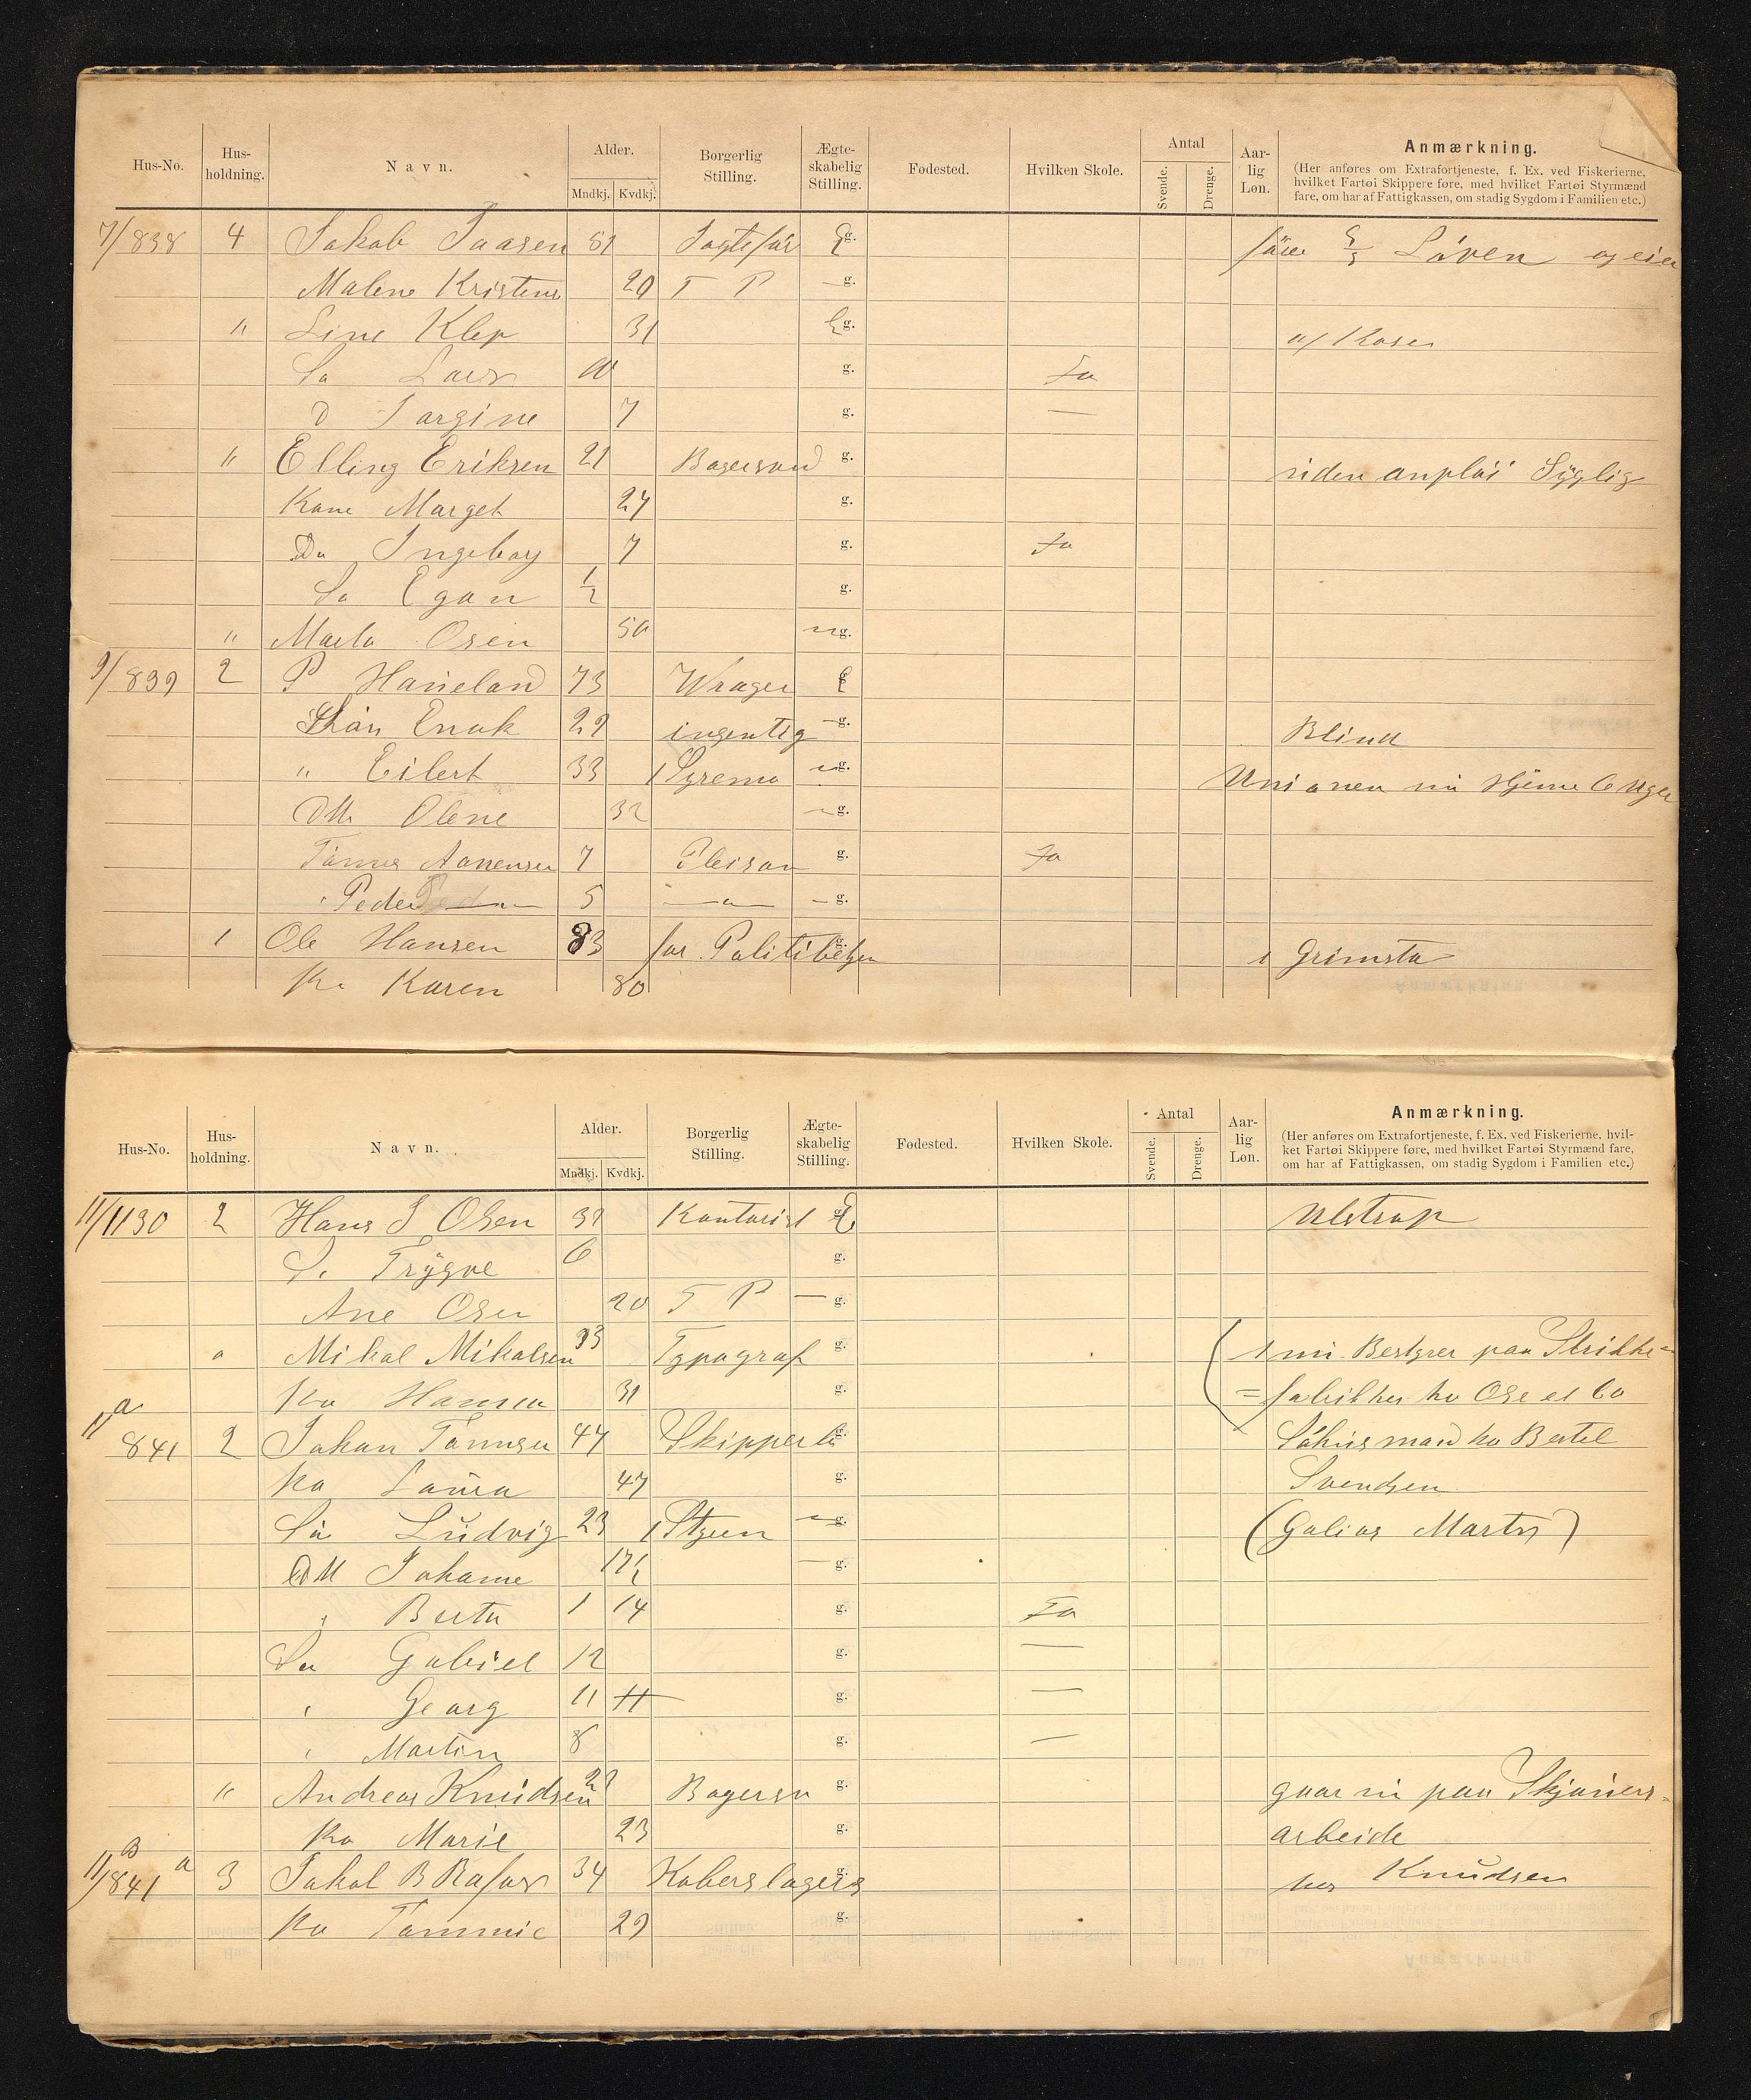 Hus-No. Hus-holdning. Navn. Alder. Mndkj. Kvdkj. Borgerlig Stilling. Ægte-skabelig Stilling. Fødested. Hvilken Skole. Antal Svende. Drenge. Aar-lig Løn. Anmærkning.
(Her anføres om Extrafortjeneste, f. Ex. ved Fiskerierne,
hvilket Fartøi Skippere føre, med hvilket Fartøi Styrmænd
fare, om har af Fattigkassen, om stadig Sygdom i Familien etc.)
7/838 4 Jakob 51 g. Löven og eier
Malene Kristens 20 T P — g.
" Line Klep 31 g.
Sø Lars 10 g. Fo
D Torgine 7 g. —
" Elling Eriksen 21 Bagersvnd g. siden
Kone Marget 27 g.
Da Ingeborg 7 g. Fo
Sø Egon 1/2 g.
" Marta Osen 50 g.
9/839 2 P Haueland 73 Wrager
Enok 29 ingentig — g. Blind
" Eilert 33 g. Unionen nu Hjeme 6 Uger
Dtt Olene 32 g.
Tønnes Aanensen 7 Pleisøn g. Fo
" Peder 5 — " — — g.
1 Ole Hansen 83 for. Politibetjen g. i Grimsta
Ko Karen 80
Hus-No. Hus-holdning. Navn. Alder. Mndkj. Kvdkj. Borgerlig Stilling. Ægte-skabelig Stilling. Fødested. Hvilken Skole. Antal Svende. Drenge. Aar-lig Løn. Anmærkning.
(Her anføres om Extrafortjeneste, f. Ex. ved Fiskerierne, hvil-
ket Fartøi Skippere føre, med hvilket Fartøi Styrmænd fare,
om har af Fattigkassen, om stadig Sygdom i Familien etc.)
11/1130 2 Hans S Olsen Kontorist g. Ulstrup
S. Trygve 6 g.
Ane Osen 20 T P — g.
" Mikal Mikalsen 33 Typograf g. nu Bestyrer paa Strikke=
Ko Hanna 31 g. =fabikken ho Ose et Co
11a/841 2 Johan Tønnsen 47 Skipper g. Söhusmand ho Bertel
Ko Laura 47 g. Svendsen
Sø Ludvig 23 g. (Galias Marty)
Dtt Johanne 17½ — g.
" Berta 1 14 g. Fo
Sø Gabiel 12 g. —
" Georg 11 11 g. —
" Martin 8 g. —
" Andreas Knudsen Bagersv g. gaar nu paa
Ko Marie 23 g. arbeide
11B/841 a 3 Jakob B 34 Koberslager g. hos Knudsen
Ko Tommie 29 g.